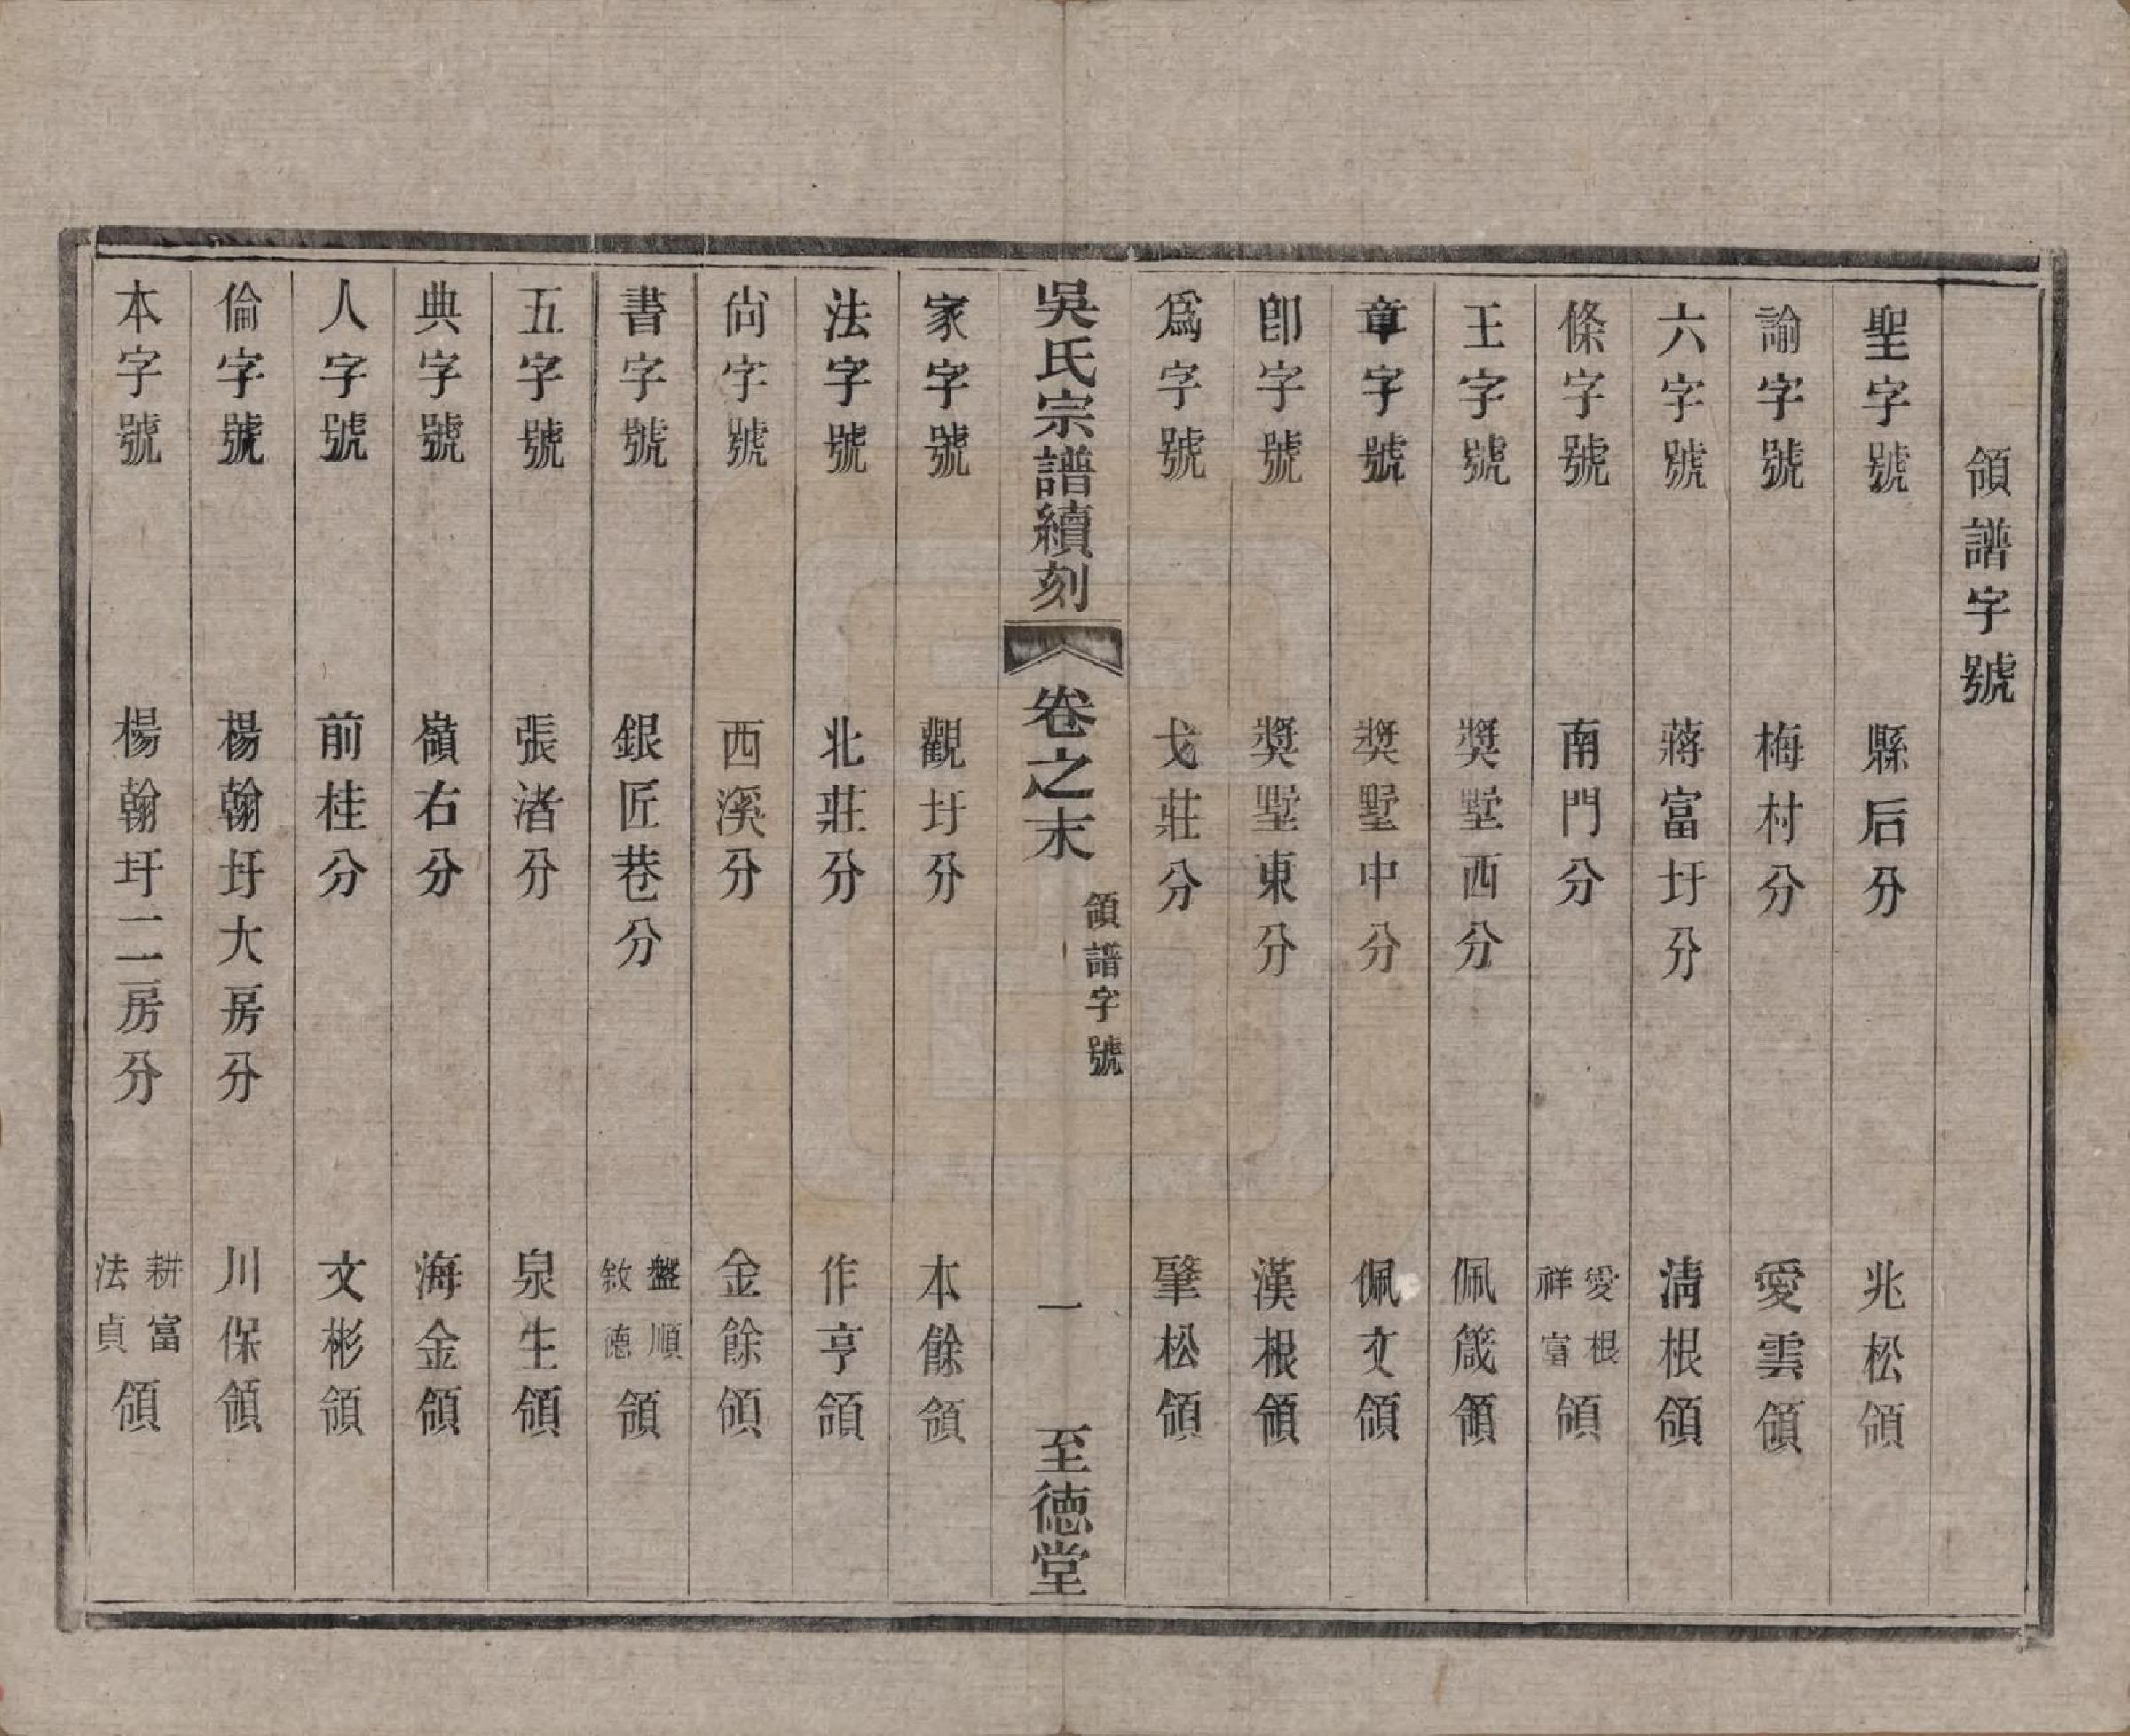 領譜字號
聖字號 縣后分 兆松領
諭字號 梅村分 愛雲領
六字號 蔣富圩分 清根領
條字號 南門分 愛根 祥富 領
王字號 奬墅西分 佩箴領
章字號 奬墅中分 佩文領
卽字號 奬墅東分 漢根領
爲字號 戈莊分 肇松領
吳氏宗譜續刻 卷之末 領譜字號 一 至德堂
家字號 觀圩分 本餘領
法字號 北莊分 作亨領
尙字號 西溪分 金餘領
書字號 銀匠巷分 盤順 敘德 領
五字號 張渚分 泉生領
典字號 嶺右分 海金領
人字號 前桂分 文彬領
倫字號 楊翰圩大房分 川保領
本字號 楊翰圩二房分 耕富 法貞 領